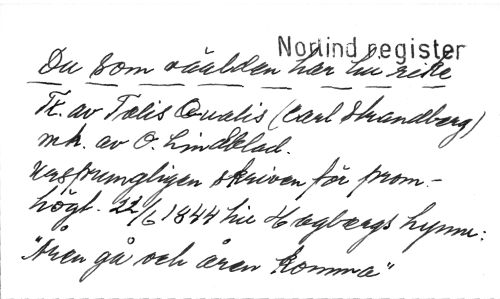 Norlind register
Du som världen har hu rike
Tt. av Talis Qualis (Carl Strandberg)
mk. av O. Lindblad.
ursprungligen skriven för prom-
högt. 22/6 1844 hir Hagbergs hymn:
"Åren gå och åren komma"